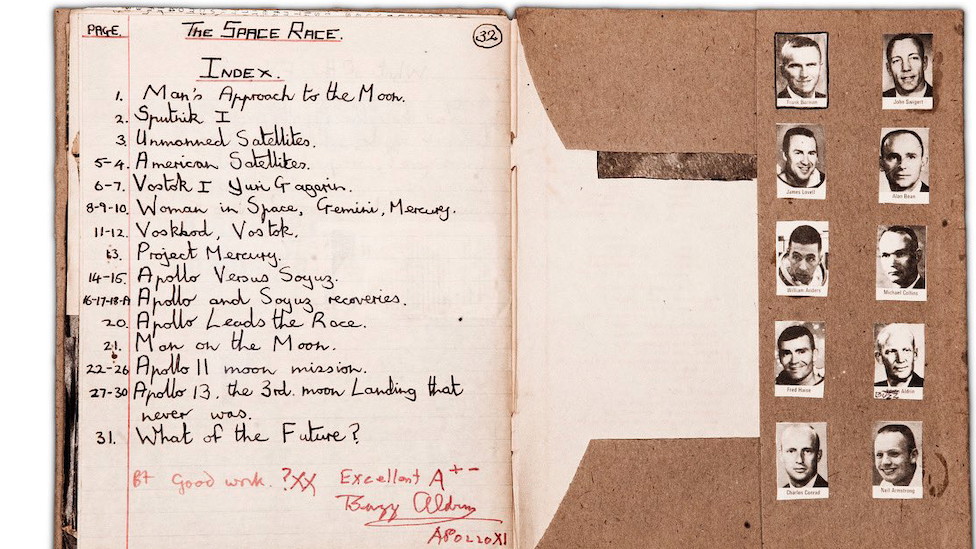 PAGE. The Space Race. 32
Index.
1. Man's Approach to the Moon.
2. Sputnik I
3. Unmanned Satellites.
5-4. American Satellites.
6-7. Vostok I Yuri Gagerin.
8-9-10. Woman in Space, Gemini, Mercury.
11-12. Voskhod, Vostok.
13. Project Mercury.
14-15. Apollo Versus Soyuz.
16-17-18-A Apollo and Soyuz recoveries.
20. Apollo Leads the Race.
21. Man on the Moon.
22-26 Apollo 11 moon mission.
27-30 Apollo 13, the 3rd. moon Landing that
never was.
31. What of the Future?
B+ Good work. ?XX Excellent A+-
Buzz Aldrin
APOLLO XI
Frank Borman
John Swigert
James Lovell
Alan Bean
William Anders
Michael Collins
Fred Haise
Aldrin
Charles Conrad
Neil Armstrong